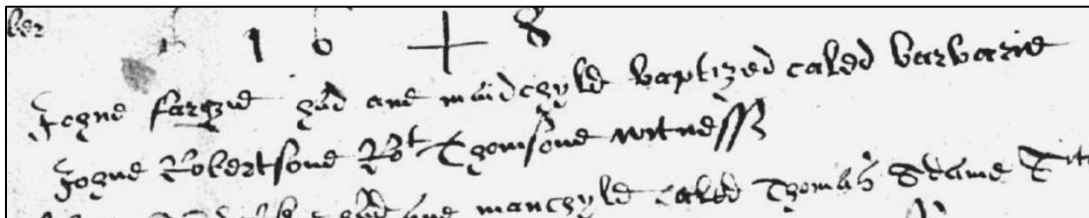 ber
1648
Johne fargue had ane maidchyld baptized caled barbarie
Johne Robertsone Rot Thomsone witness
had ane manchyld caled Thomas